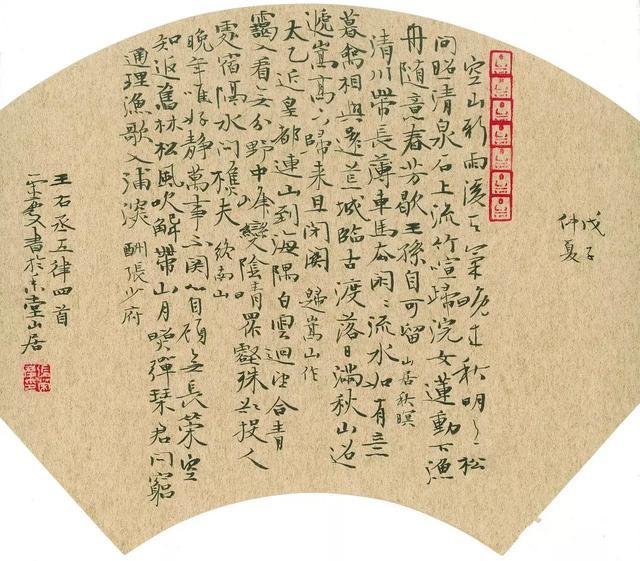 戊子
仲夏
空山新雨後天氣晚來秋明月松
间照清泉石上流竹喧歸浣女蓮動下漁
舟随意春芳歇王孫自可留 山居秋暝
清川帶長薄車馬去閑閑流水如有意
暮禽相與還荒城臨古渡落日滿秋山迢
遞嵩高下歸來且閉關 歸嵩山作
太乙近皇都連山到海隅白雲迴望合青
靄入看無分野中峰變陰晴眾壑殊欲投人
處宿隔水問樵夫 終南山
晚年唯好静萬事不關心自顧無長策空
知返舊林松風吹解帶山月照彈琴君問窮
通理漁歌入浦深 酬張少府
王右丞五律四首
書於 堂山居